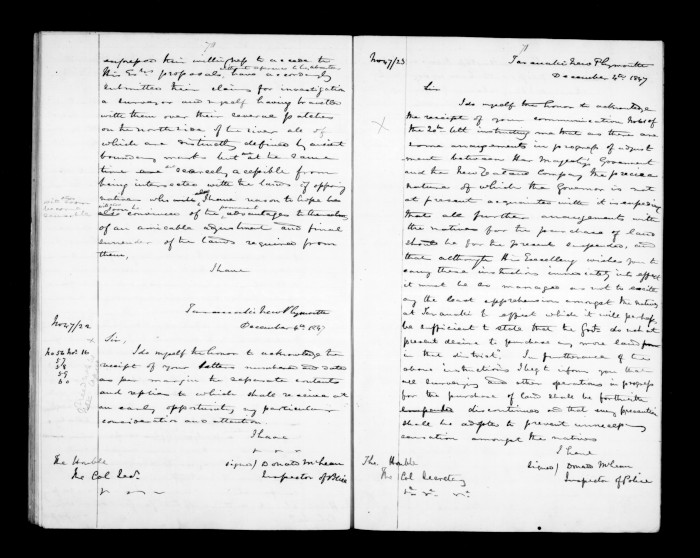 70
expressed their willingness to accede to
His Ex'cys proposals, have accordingly
submitted their claims for investigation
a surveyor and myself having travelled
with them over their several patches
on the north side of the river all of
which are distinctly defined by ancient
boundary marks but at the same
time are scarcely accessible from
being intersected with the lands of opposing
natives who I have reason to hope
convinces of the advantages to themselves
of an amicable adjustment and final
surrender of the lands required from
them,
I have
Taranaki New Plymouth
No 47/22
December 4th 1847
Sir,
No 56 Nov. 16
57
58
59
60
I do myself the honor to acknowledge the
receipt of your letters numbers and dates
as per margin the separate contents
and replies to which shall receive at
an early opportunity my particular
consideration and attention.
I have
The Honble
The Col Secy.
signed/ Donald McLean
Inspector of Police
71
No 47/23
Taranaki New Plymouth
December 4th 1847
Sir
I do myself the honor to acknowledge
the receipt of your communication No 61 of
the 20th Ult instructing me that as there are
some arrangements in progress of adjust
ment between Her Majesty's Government
and the New Zealand Company the precise
nature of which the Governor is not
at present acquainted with it is expedient
that all further arrangements with
the natives for the purchase of land
should be for the present suspended, and
that although His Excellency wishes you to
carry these instructions immediately into effect
it must be so managed as not to excite
any the least apprehension amongst the natives
at Taranaki to effect which it will perhaps
be sufficient to state that the Govt do not at
present desire to purchase any more land
in that district. In furtherance of the
above instructions I beg to inform you that
all surveying and other operations in progress
for the purchase of land shall be forthwith
discontinued and that every precaution
shall be adopted to prevent unnecessary
sensation amongst the natives
I have
The Honble
The Col Secretary
signed/ Donald McLean
Inspector of Police